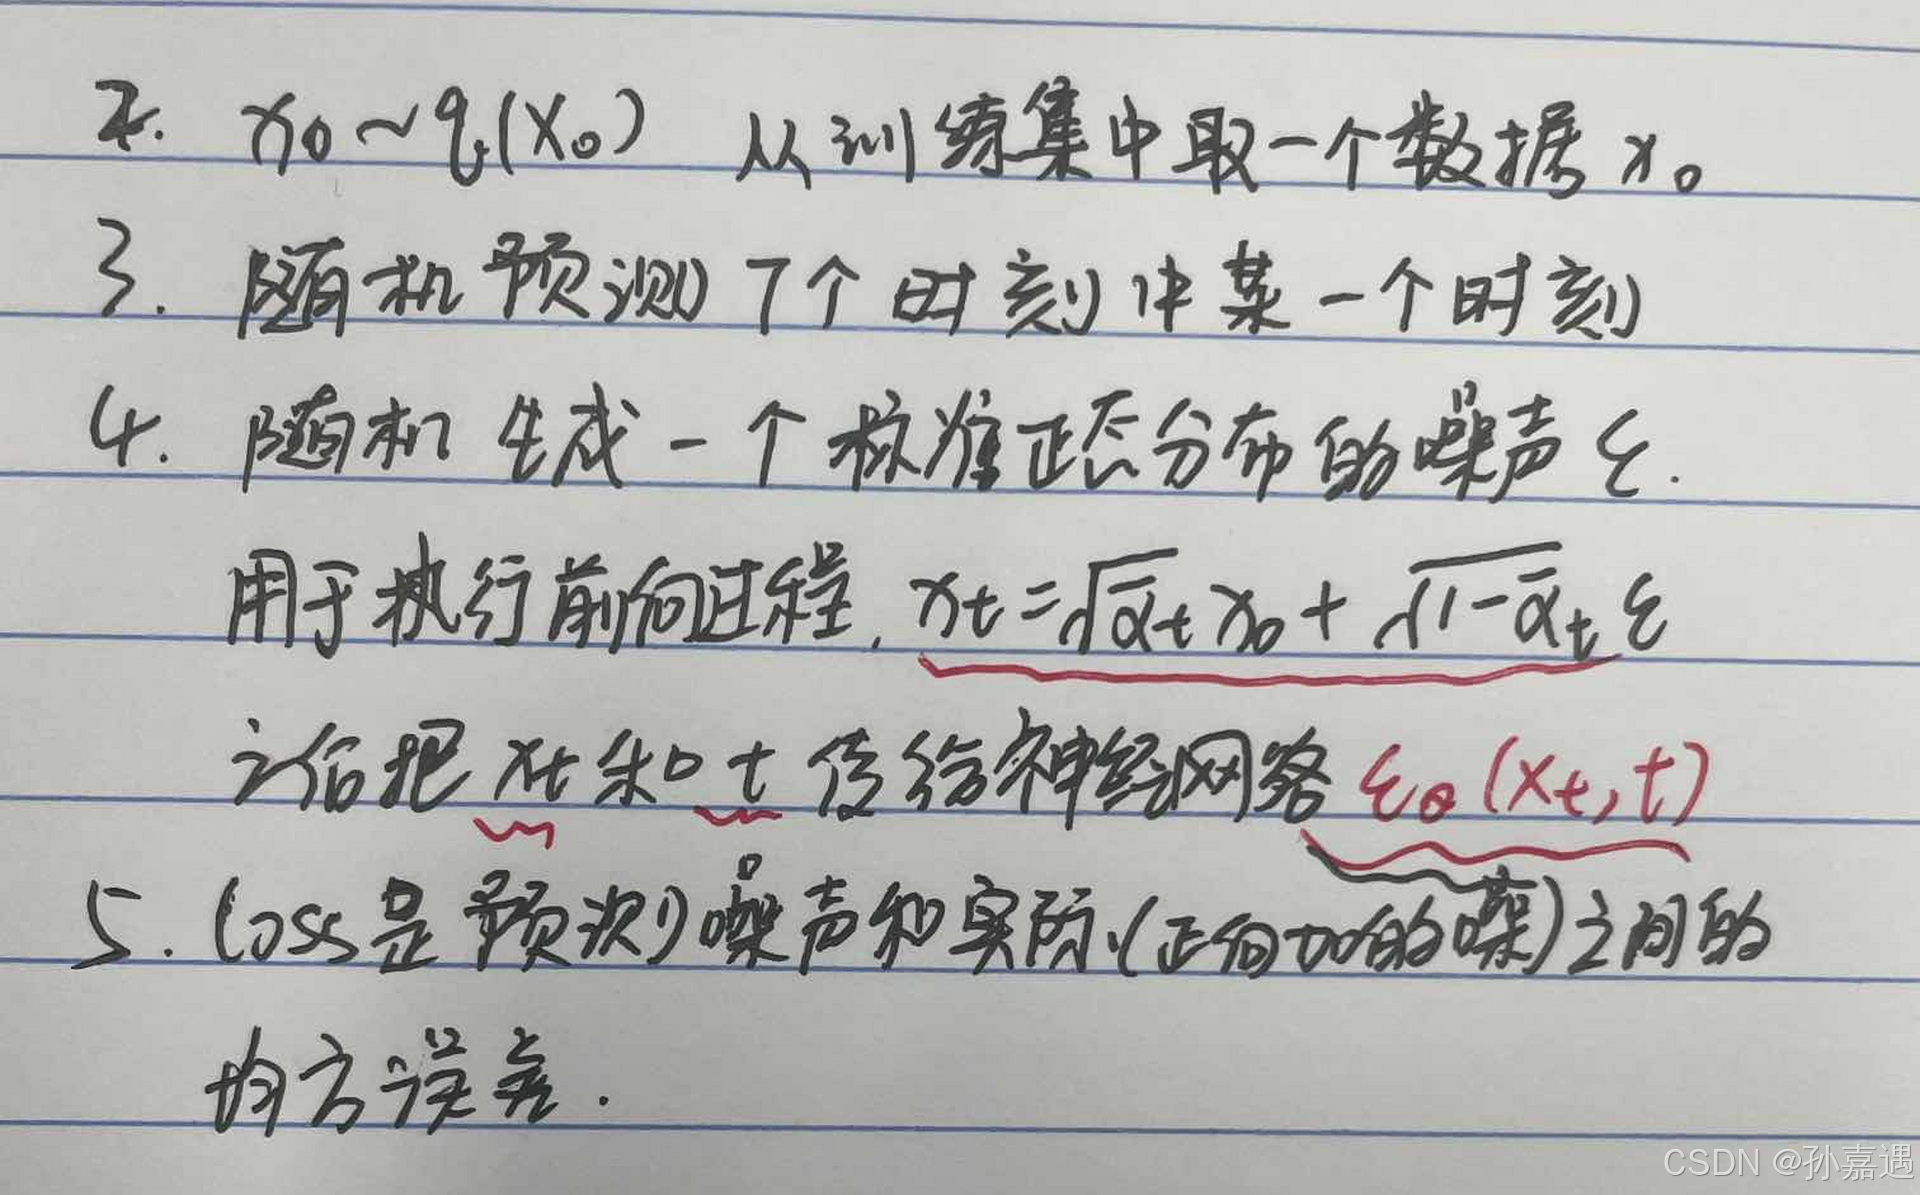 2. x₀~q(x₀) 从训练集中取一个数据 x₀
3. 随机预测 T个时刻中某一个时刻
4. 随机生成一个标准正态分布的噪声 ε.
用于执行前向过程, xₜ=√ᾱₜ x₀ + √1-ᾱₜ ε
之后把 xₜ 和 t 传给神经网络 εθ(xₜ,t)
5. Loss是预测噪声和实际(正向加的噪)之间的
均方误差.
CSDN @孙嘉遇